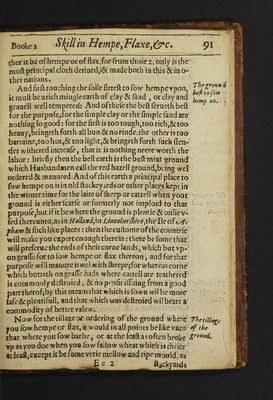 Booke 2 Skill in Hempe, Flaxe, &c. 91
ther it be of hempe or of flax, for from those 2. only is the
most principal cloth deriued, & made both in this & in o-
ther nations.
And first touching the soile fittest to sow hempe vpon,
it must be a rich mingle earth of clay & sand, or clay and
grauell well tempered: And of these the best serueth best
for the purpose, for the simple clay or the simple sand are
nothing so good: for the first is too tough, too rich, & too
heauy, bringeth forth all bun & no rinde, the other is too
barraine, too hot, & too light, & bringeth forth such slen-
der withered increase, that it is nothing neere worth the
labor: briefly then the best earth is the best mixt ground
which Husbandmen call the red hazell ground, being wel
ordered & manured. And of this earth a principal place to
sow hempe on is in old stackeyards or other places kept in
the winter time for the laire of sheep or cattell when your
ground is either scarse or formerly not imploid to that
purpose, but if it be where the ground is plentie & onlie v-
sed thereunto, as in Holland, in Lincolne shire, the Ile of
& such like places: then the custome of the countrie
will make you expert enough therein: there be some that
will preserue the ends of their corne lands, which but vp-
on grasse for to sow hempe or flax thereon, and for that
purpose will manure it wel with sheepe; for whereas corne
which butteth on grasse hads where cattell are teathered
is commonly destroied, & no profit issuing from a good
part therof, by this means that which is sown will be more
safe & plentifull, and that which was destroied wil beare a
commodity of better valew.
Now for the tillage or ordering of the ground where
you sow hempe or flax, it would in all points be like vnto
that where you sow barlie, or at the least as often broke
vp as you doe when you sow fallow wheat which is thrice
at least, except it be some verie mellow and ripe mould, as
E e 2 stackyards
The ground
best to sow
hemp on.
The tillage
of the
ground.